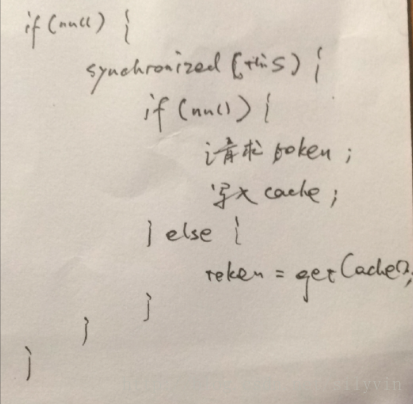 if (null) {
synchronized (this) {
if (null) {
请求 token ;
写入 cache ;
} else {
token = getCache();
}
}
}